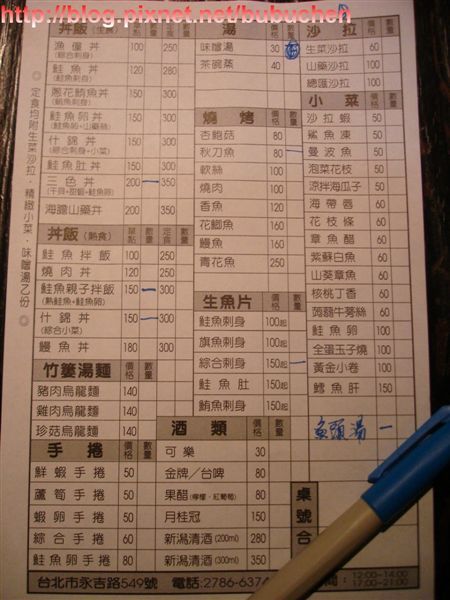 http://blog.pixnet.net/bubuchen
丼飯（生食） 單點 數量 定食 數量
漁僮丼 100 250
(綜合刺身)
鮭魚丼 120 280
(鮭魚刺身)
蔥花鮪魚丼 150 300
(鮪魚刺身)
鮭魚卵丼 150 300
(鮭魚卵+山藥絲)
什錦丼 150 300
(綜合刺身+小菜)
鮭魚肚丼 150 300
三色丼 200 一 350
(干貝+甜蝦+鮭魚卵)
海膽山藥丼 200 350
丼飯（熟食） 單點 數量 定食 數量
鮭魚拌飯 100 250
燒肉丼 120 250
鮭魚親子拌飯 150 一 300
(熟鮭魚+鮭魚卵)
什錦丼 150 一 300
(綜合小菜)
鰻魚丼 180 300
竹簍湯麵 價格 數量
豬肉烏龍麵 140
雞肉烏龍麵 140
珍菇烏龍麵 140
手捲 價格 數量
鮮蝦手捲 50
蘆筍手捲 50
蝦卵手捲 50
綜合手捲 60
鮭魚卵手捲 80
湯 價格 數量
味噌湯 30
茶碗蒸 40
燒烤 價格 數量
杏鮑菇 80
秋刀魚 80 一
軟絲 100
燒肉 100
香魚 120
花鯽魚 160
鰻魚 160
青花魚 250
生魚片 價格 數量
鮭魚刺身 100起
旗魚刺身 100起
綜合刺身 150起 一
鮭魚肚 150起
鮪魚刺身 150起
酒類 價格 數量
可樂 30
金牌/台啤 80
果醋(檸檬•紅葡萄) 80
月桂冠 150
新潟清酒(200ml) 280
新潟清酒(300ml) 350
沙拉 價格 數量
生菜沙拉 60
山藥沙拉 100
總匯沙拉 100
小菜 價格 數量
沙拉蝦 50
鯊魚凍 50
曼波魚 50
泡菜花枝 50
涼拌海瓜子 50
海帶唇 60
花枝條 60
章魚醋 60
紫蘇白魚 60
山葵章魚 60
核桃丁香 60
蒟蒻牛蒡絲 60
鮭魚卵 100
全蛋玉子燒 100
黃金小卷 100
鱈魚肝 180
魚頭湯 一
桌號
合
◎定食均附生菜沙拉•精緻小菜•味噌湯乙份◎
台北市永吉路549號 電話:2786-6374
間：12:00~14:00
17:00~21:00